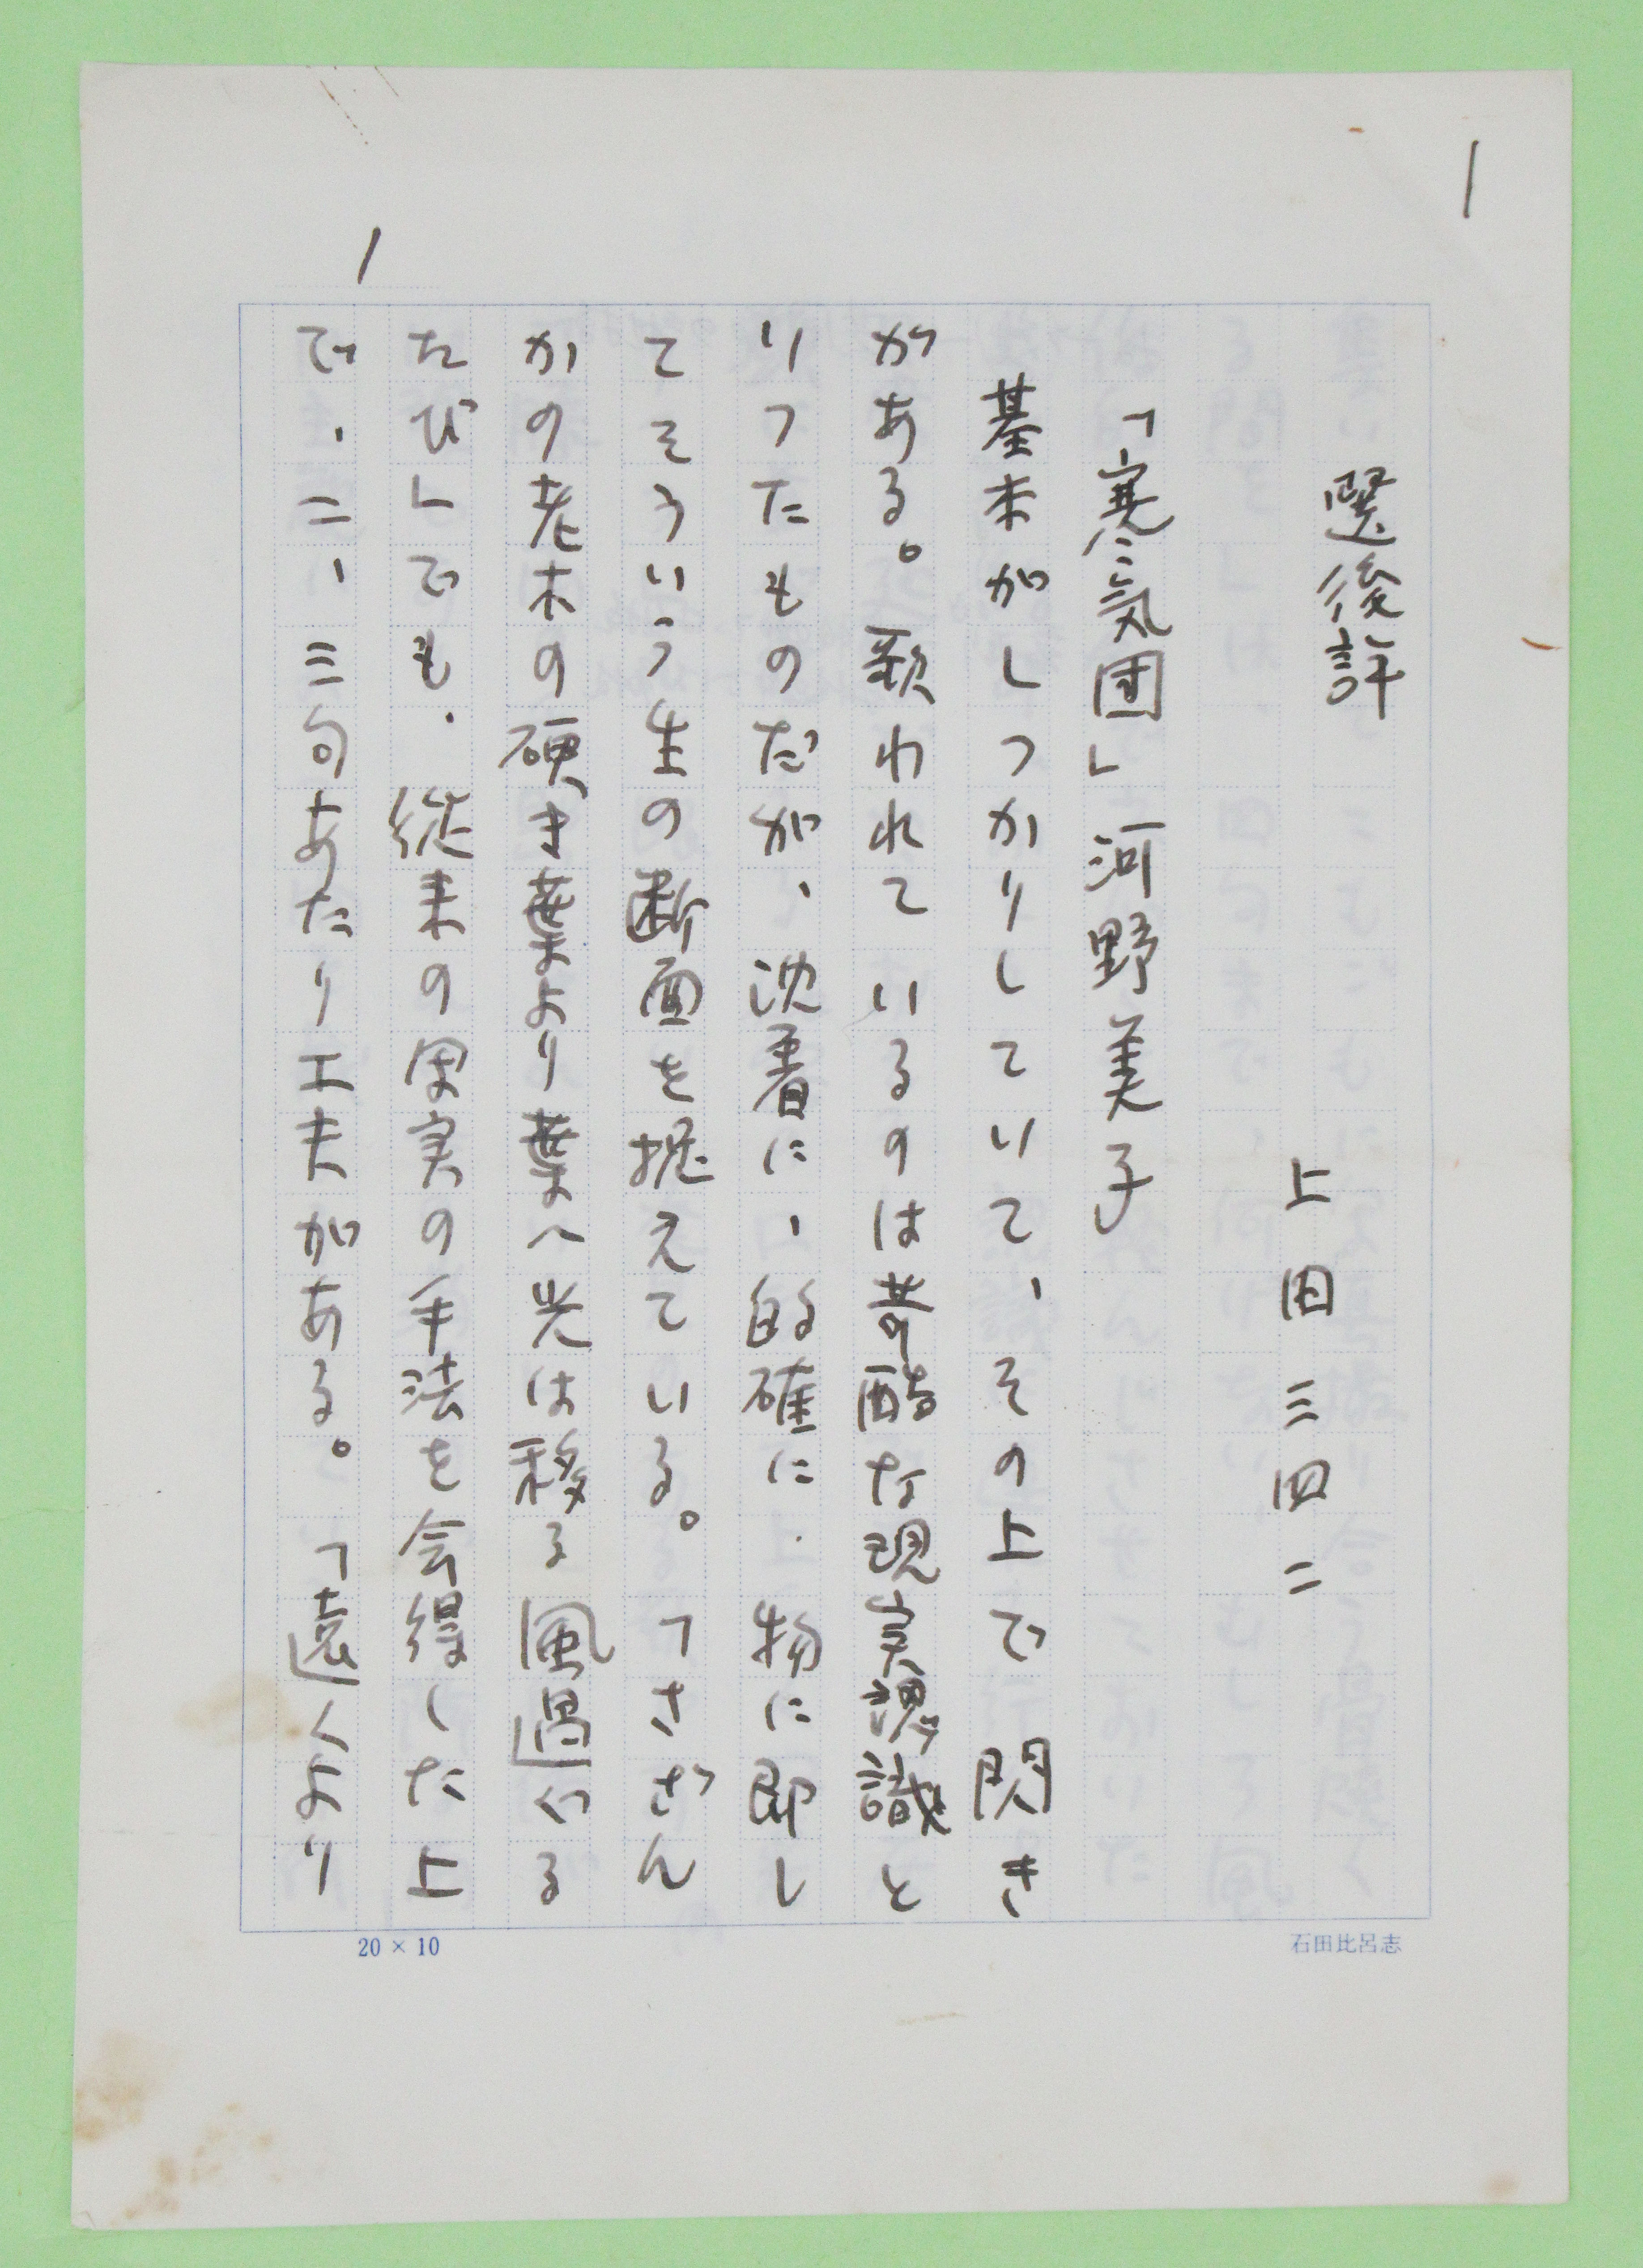 1
選後評
上田三四二
「寒気団」河野美子
基本がしっかりしていて、その上で閃き
がある。歌われているのは苛酷な現実認識と
いったものだが、沈着に、的確に、物に即し
てそういう生の断面を捉えている。「さざん
かの老木の硬き葉より葉へ光は移る風過ぐる
たび」でも、従来の写実の手法を会得した上
で、二、三句あたり工夫がある。「遠くより
1
20×10
石田比呂志